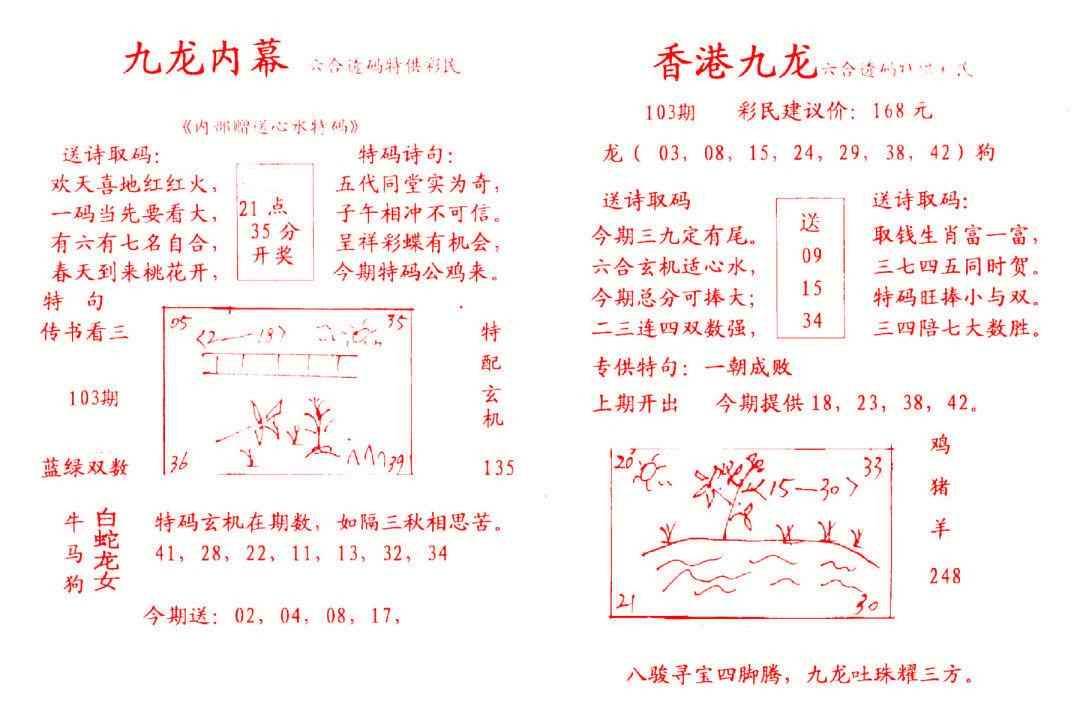 九龙内幕 六合透码特供彩民
《内部赠送心水特码》
送诗取码:
欢天喜地红红火,
一码当先要看大,
有六有七名自合,
春天到来桃花开,
21点
35分
开奖
特码诗句:
五代同堂实为奇,
子午相冲不可信。
呈祥彩蝶有机会,
今期特码公鸡来。
特 句
传书看三
103期
蓝绿双数
05 35
<2—18>
36 39
特
配
玄
机
135
牛
马
狗
白
蛇
龙
女
特码玄机在期数, 如隔三秋相思苦。
41, 28, 22, 11, 13, 32, 34
今期送: 02, 04, 08, 17,
香港九龙 六合透码特供彩民
103期 彩民建议价: 168 元
龙( 03, 08, 15, 24, 29, 38, 42)狗
送诗取码
今期三九定有尾。
六合玄机适心水,
今期总分可捧大;
二三连四双数强,
送
09
15
34
送诗取码:
取钱生肖富一富,
三七四五同时贺。
特码旺捧小与双。
三四陪七大数胜。
专供特句: 一朝成败
上期开出 今期提供 18, 23, 38, 42。
20 33
<15—30>
21 30
鸡
猪
羊
248
八骏寻宝四脚腾, 九龙吐珠耀三方。